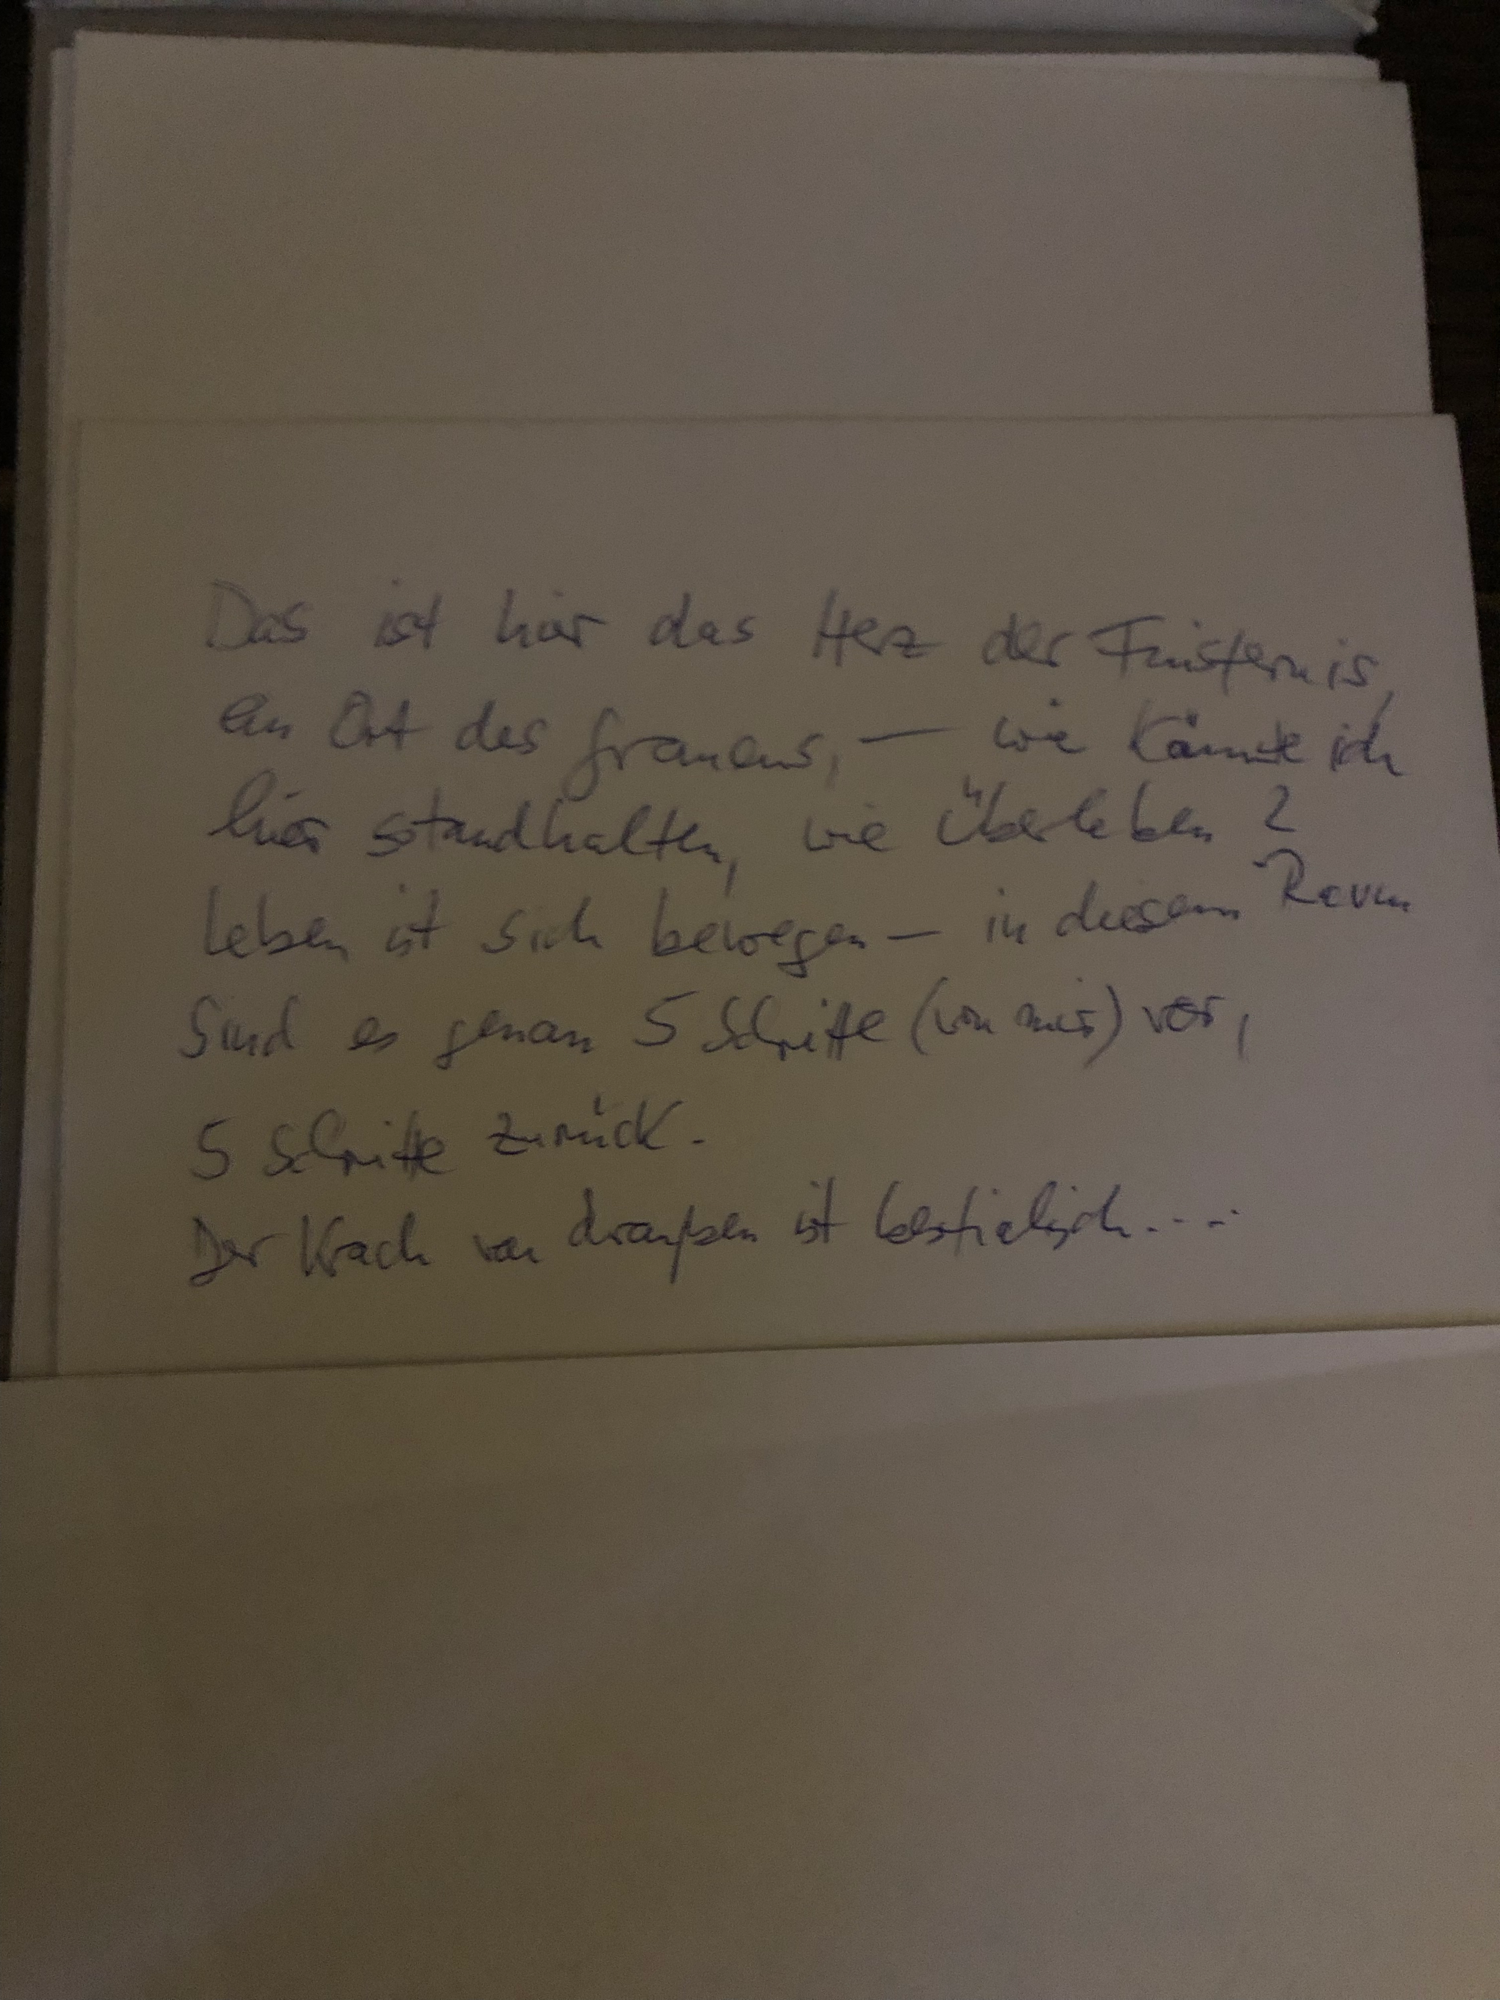 Das ist hier das Herz der Finsternis,
ein Ort des Grauens, — wie könnte ich
hier standhalten, wie überleben?
Leben ist sich bewegen — in diesem Raum
sind es genau 5 Schritte (von mir) vor,
5 Schritte zurück.
Der Krach von draußen ist bestialisch....